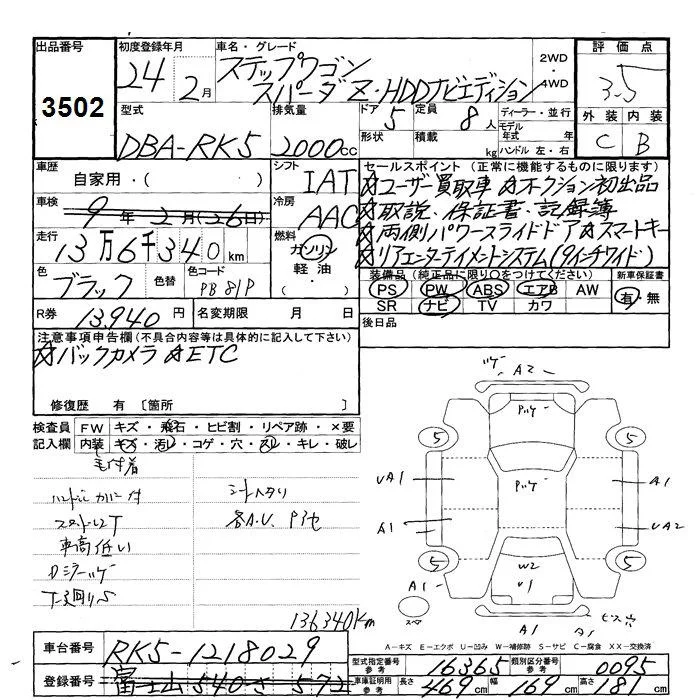 出品番号 初度登録年月 車名・グレード 2WD・4WD 評価点
3502 24 2月 ステップワゴン スパーダ Z・HDDナビエディション 3.5
型式 排気量 ドア 定員 ディーラー・並行 外装 内装
DBA-RK5 2000cc 5 8人 モデル年式 年 C B
形状 積載 kg ハンドル 左・右
車歴 シフト セールスポイント(正常に機能するものに限ります)
自家用・( ) IAT ☆ユーザー買取車 ☆オークション初出品
車検 冷房 ☆取説・保証書・記録簿
9年 2月(26日) AAC ☆両側パワースライドドア ☆スマートキー
走行 燃料 ☆リアエンターテイメントシステム(9インチワイド)
13万6千340km ガソリン 軽油・
色 色替 色コード 装備品(純正品に限り○をつけてください) 新車保証書
ブラック PB81P PS PW ABS エアB AW 有・無
SR ナビ TV カワ
R券 13,940円 名変期限 月 日 後日品
注意事項申告欄(不具合内容等は具体的に記入して下さい)
☆バックカメラ ☆ETC
修復歴 有〔箇所 〕
検査員 FW キズ・飛石・ヒビ割・リペア跡・×要
記入欄 内装 キズ・汚レ・コゲ・穴・スレ・キレ・破レ
毛付着
シートヘタリ
車高低い
136340Km
ツゲ A2
5 5
UA1 A1
A1 UA2
5 5
W2
U1
A1 A1 A1
A-キズ E-エクボ U-凹み W-補修跡 S-サビ C-腐食 XX-交換済
車台番号 RK5-1218029
型式指定番号 参考 16365 類別区分番号 参考 0095
登録番号 富士山 540 さ 572
車庫証明用 参考 長さ 469cm 幅 169cm 高さ 181cm